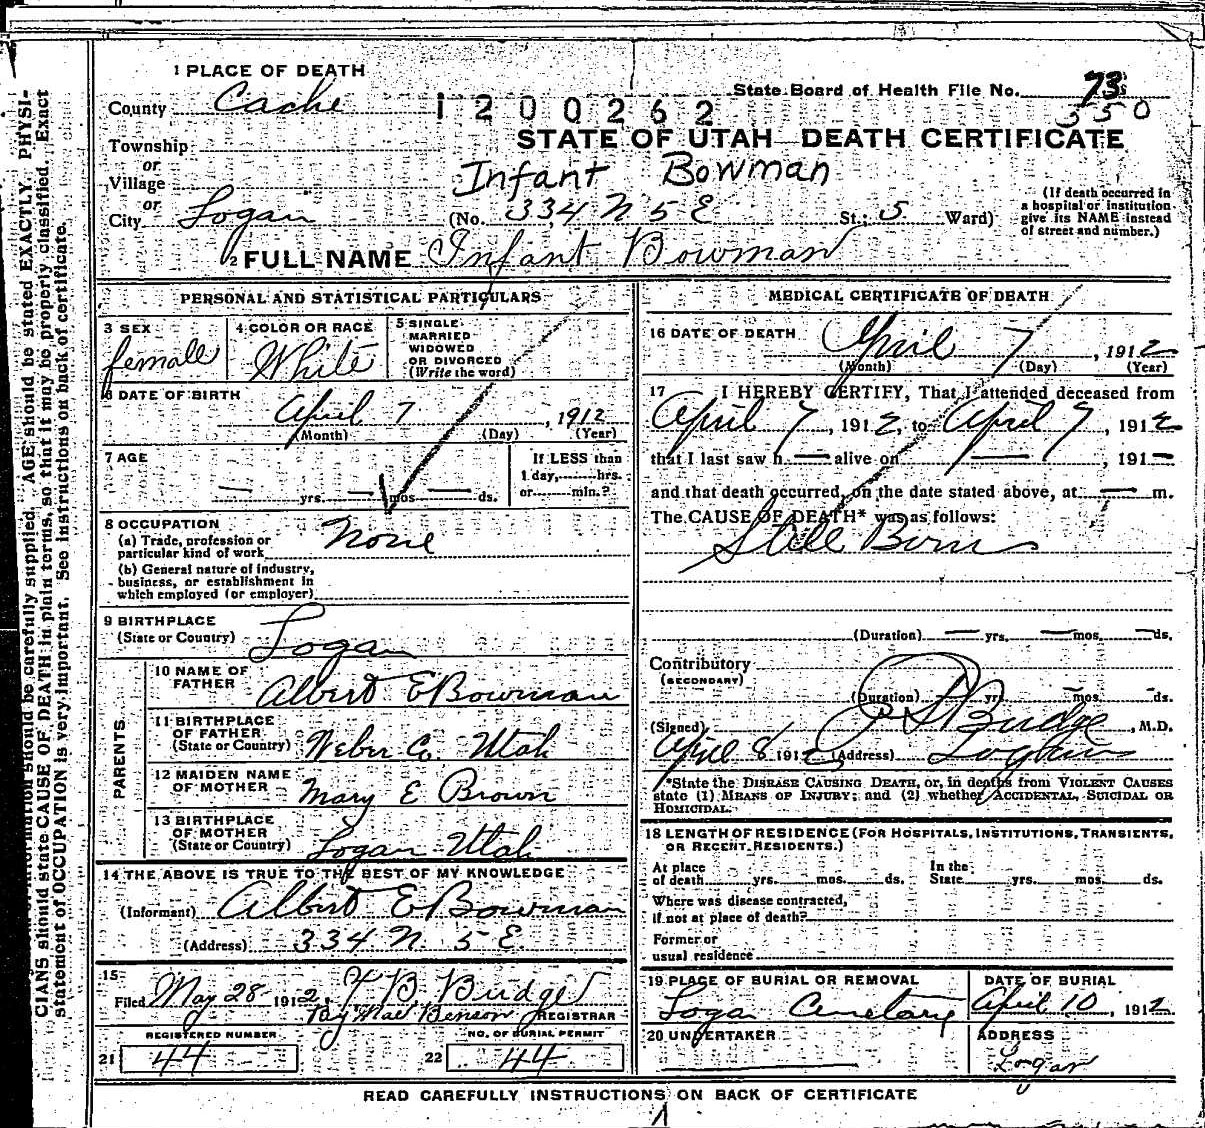 1 PLACE OF DEATH
County Cache
1200262
State Board of Health File No. 73
350
STATE OF UTAH—DEATH CERTIFICATE
Township
or
Village
Infant Bowman
or
City Logan (No. 334 N 5 E St.; 5 Ward)
(If death occurred in
a hospital or institution
give its NAME instead
of street and number.)
2 FULL NAME Infant Bowman
PERSONAL AND STATISTICAL PARTICULARS
3 SEX
female
4 COLOR OR RACE
White
5 SINGLE
MARRIED
WIDOWED
OR DIVORCED
(Write the word)
6 DATE OF BIRTH
April 7, 1912
(Month) (Day) (Year)
7 AGE
— yrs. — mos. — ds.
If LESS than
1 day, hrs.
or min.?
8 OCCUPATION
(a) Trade, profession or
particular kind of work None
(b) General nature of industry,
business, or establishment in
which employed (or employer)
9 BIRTHPLACE
(State or Country) Logan
PARENTS
10 NAME OF
FATHER Albert E Bowman
11 BIRTHPLACE
OF FATHER
(State or Country) Weber Co. Utah
12 MAIDEN NAME
OF MOTHER Mary E Brown
13 BIRTHPLACE
OF MOTHER
(State or Country) Logan Utah
14 THE ABOVE IS TRUE TO THE BEST OF MY KNOWLEDGE
(Informant) Albert E Bowman
(Address) 334 N. 5 E.
15
Filed May 28 1912, B. Budge
By Mae Benson REGISTRAR
REGISTERED NUMBER
21 44
NO. OF BURIAL PERMIT
22 44
MEDICAL CERTIFICATE OF DEATH
16 DATE OF DEATH April 7, 1912
(Month) (Day) (Year)
17 I HEREBY CERTIFY, That I attended deceased from
April 7, 1912, to April 7, 1912
that I last saw h — alive on —, 191—
and that death occurred, on the date stated above, at — m.
The CAUSE OF DEATH* was as follows:
Still Born
(Duration) — yrs. — mos. — ds.
Contributory
(SECONDARY)
(Duration) yrs. — mos. — ds.
(Signed) Budge, M.D.
April 8 1912 (Address) Logan
*State the DISEASE CAUSING DEATH, or, in deaths from VIOLENT CAUSES
state (1) MEANS OF INJURY; and (2) whether ACCIDENTAL, SUICIDAL OR
HOMICIDAL.
18 LENGTH OF RESIDENCE (FOR HOSPITALS, INSTITUTIONS, TRANSIENTS,
OR RECENT RESIDENTS.)
At place
of death yrs. mos. ds.
In the
State yrs. mos. ds.
Where was disease contracted,
if not at place of death?
Former or
usual residence
19 PLACE OF BURIAL OR REMOVAL
Logan Cemetary
DATE OF BURIAL
April 10, 1912
20 UNDERTAKER
ADDRESS
Logan
READ CAREFULLY INSTRUCTIONS ON BACK OF CERTIFICATE
information should be carefully supplied. AGE should be stated EXACTLY. PHYSI-
CIANS should state CAUSE OF DEATH in plain terms, so that it may be properly classified. Exact
statement of OCCUPATION is very important. See instructions on back of certificate.